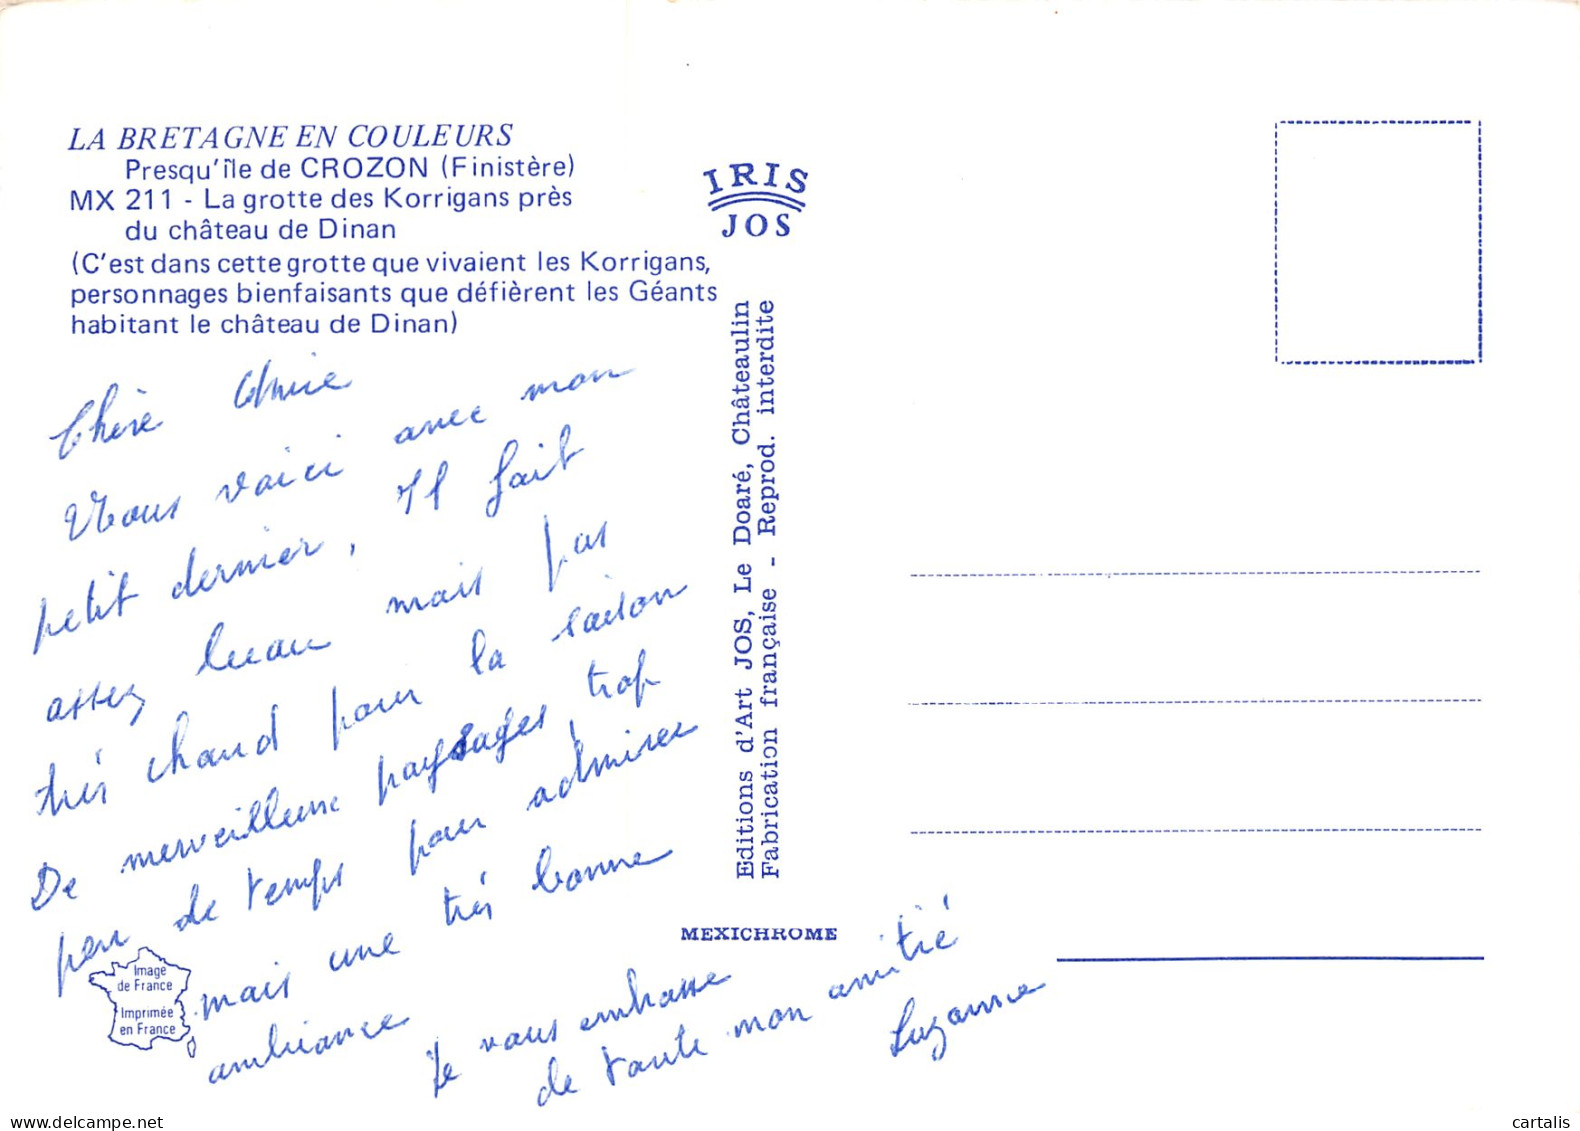 LA BRETAGNE EN COULEURS
Presqu'île de CROZON (Finistère)
MX 211 - La grotte des Korrigans près
du château de Dinan
(C'est dans cette grotte que vivaient les Korrigans,
personnages bienfaisants que défièrent les Géants
habitant le château de Dinan)
IRIS
JOS
Editions d'Art JOS, Le Doaré, Châteaulin
Fabrication française - Reprod. interdite
MEXICHROME
Chère
Nous voici avec mon
petit dernier, Il fait
assez beau mais pas
très chaud pour la saison
De merveilleux paysages, trop
peu de temps pour admirer
mais une très bonne
ambiance
Je vous embrasse
de toute mon amitié
Suzanne
Image
de France
Imprimée
en France
cartalis
www.delcampe.net